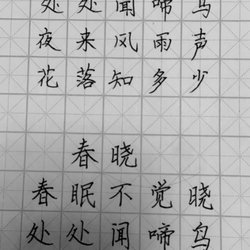 处处闻啼鸟
夜来风雨声
花落知多少
春晓
春眠不觉晓
处处闻啼鸟